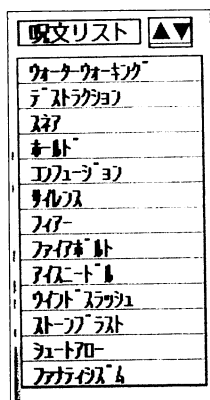 呪文リスト ▲▼
ウォーターウォーキング
デストラクション
スネア
ホールド
コンフュージョン
サイレンス
フィアー
ファイアボルト
アイスニードル
ウインドスラッシュ
ストーンブラスト
シュートアロー
ファナティシズム